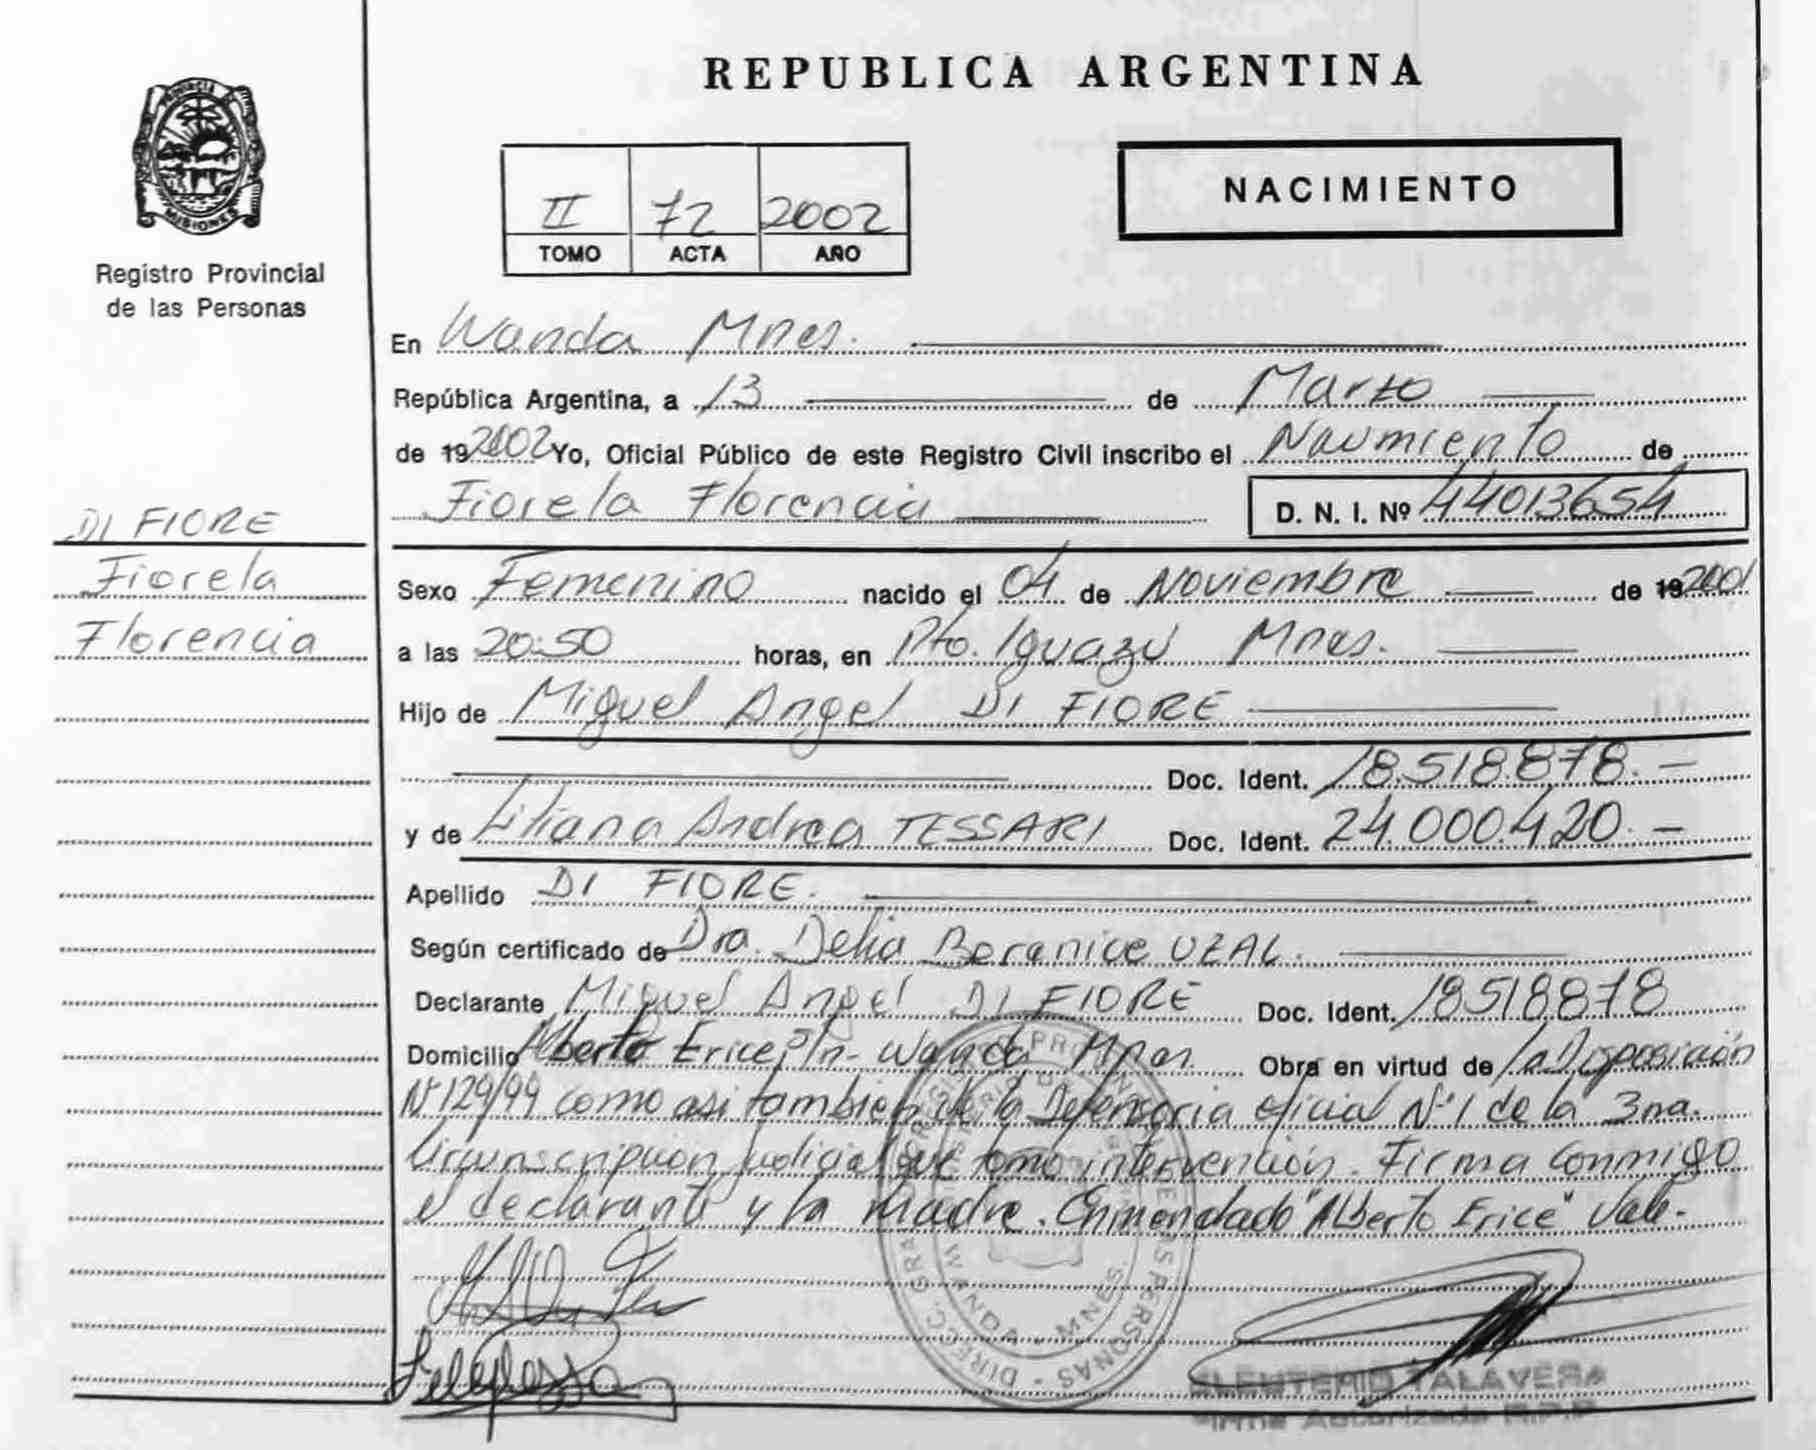 REPUBLICA ARGENTINA
PROVINCIA DE
MISIONES
Registro Provincial
de las Personas
II 72 2002
TOMO ACTA AÑO
NACIMIENTO
En Wanda Mnes.
República Argentina, a 13 de Marzo
de 19 2002 Yo, Oficial Público de este Registro Civil inscribo el Nacimiento de
Fiorela Florencia D. N. I. Nº 44013654
DI FIORE
Fiorela
Florencia
Sexo Femenino nacido el 04 de Noviembre de 19 2001
a las 20:50 horas, en Pto. Iguazú Mnes.
Hijo de Miguel Angel DI FIORE
Doc. Ident. 18.518.878.-
y de Liliana Andrea TESSARI Doc. Ident. 24.000.420.-
Apellido DI FIORE.
Según certificado de Dra. Delia Beranice UZAL.
Declarante Miguel Angel DI FIORE Doc. Ident. 18518878
Domicilio Alberto Erice S/n- Wanda Mnes. Obra en virtud de la Disposición
Nº 129/99 como asi tambien de la Defensoria oficial Nº 1 de la 3ra.
Circunscripción Judicial que tomo intervención. Firma conmigo
el declarante y la Madre. Enmendado "Alberto Erice" Vale.-
WANDA - MNES
ELEUTERIO TALAVERA
Firma Autorizada R.P.P.